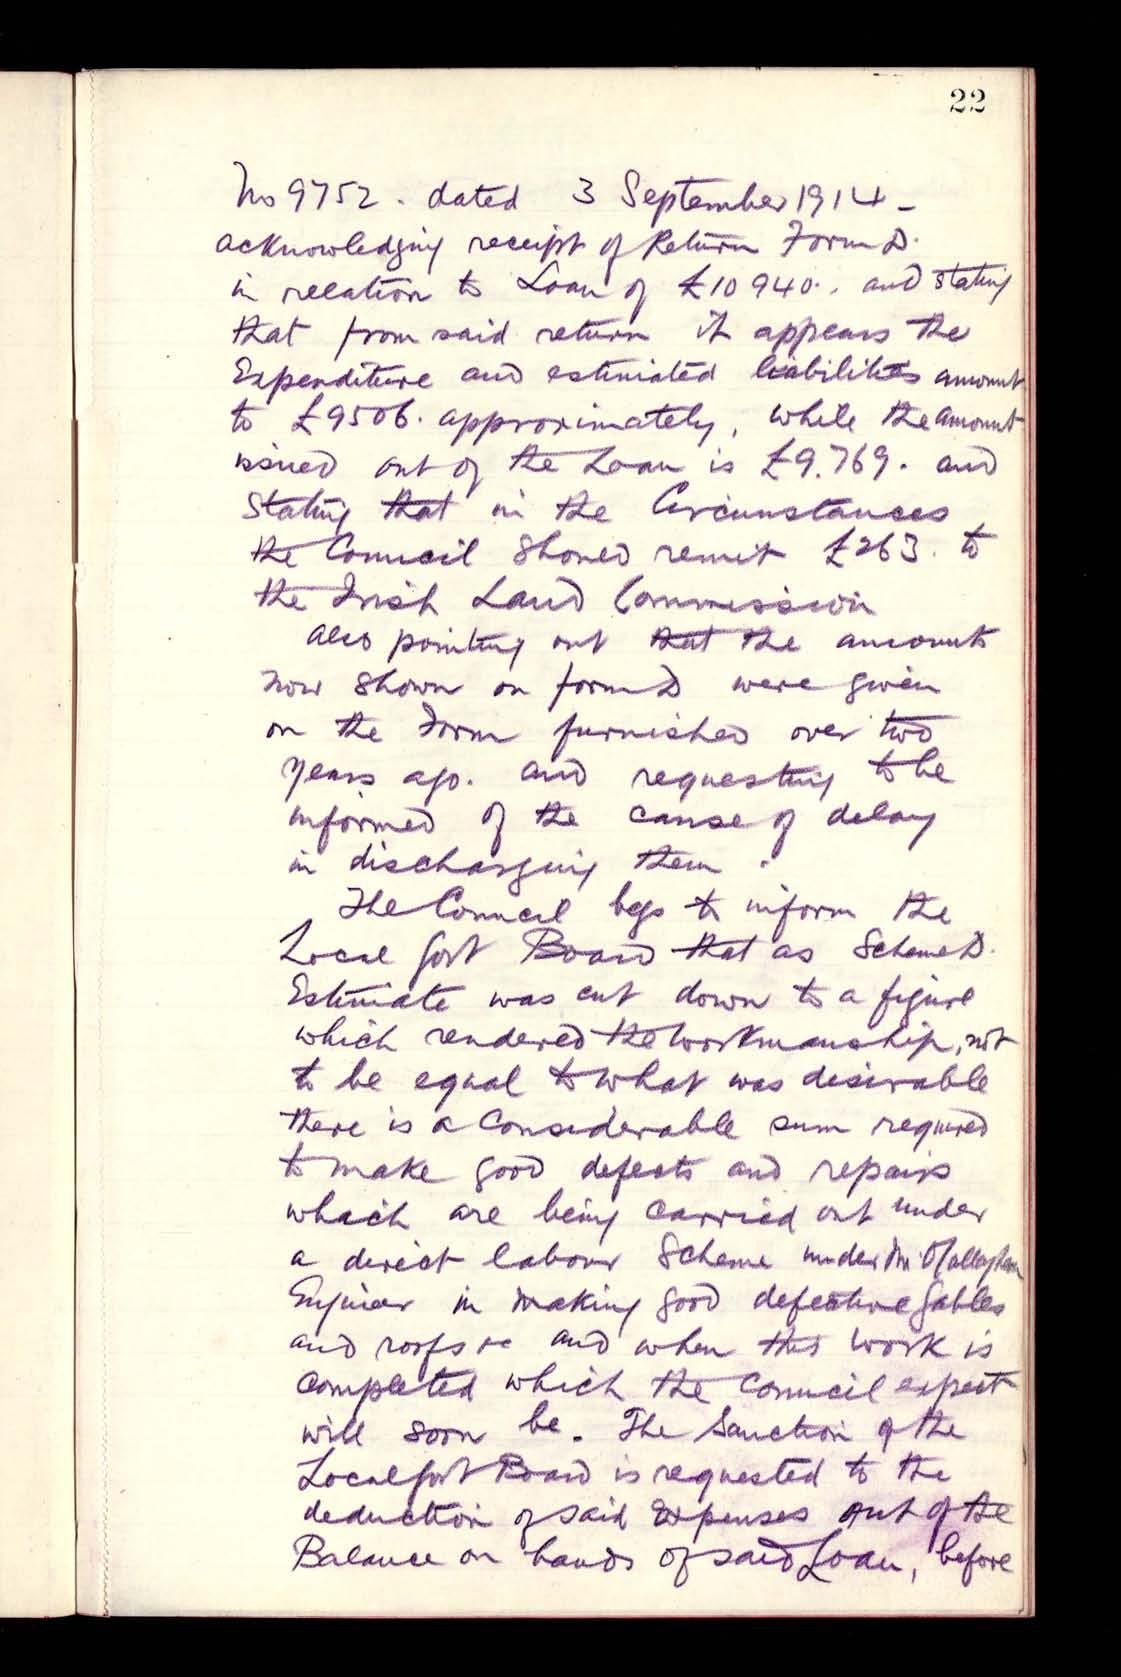 22
No 9752. dated 3 September 1914 -
acknowledging receipt of Return Form D.
in relation to Loan of £10940., and stating
that from said return it appears the
Expenditure and estimated liabilities amount
to £9506. approximately, while the amount
issued out of the Loan is £9.769. and
stating that in the Circumstances
the Council should remit £263. to
the Irish Land Commission
also pointing out that the amounts
now shown on form D were given
on the Form furnished over two
years ago. and requesting to be
informed of the cause of delay
in discharging them.
The Council begs to inform the
Local Govt Board that as Scheme D.
Estimate was cut down to a figure
which rendered the workmanship, not
to be equal to what was desirable
there is a Considerable sum required
to make good defects and repairs
which are being carried out under
a direct labour Scheme under Mr O'Callaghan
Engineer in making good defective gables
and roofs &c and when this work is
completed which the Council expect
will soon be. The Sanction of the
Local Govt Board is requested to the
deduction of said Expenses out of the
Balance on hands of said Loan, before